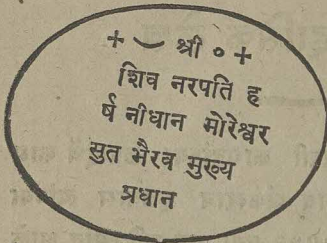 + ⌣ श्री ० +
शिव नरपति ह
र्ष नीधान मोरेश्वर
सुत भैरव मुख्य
प्रधान